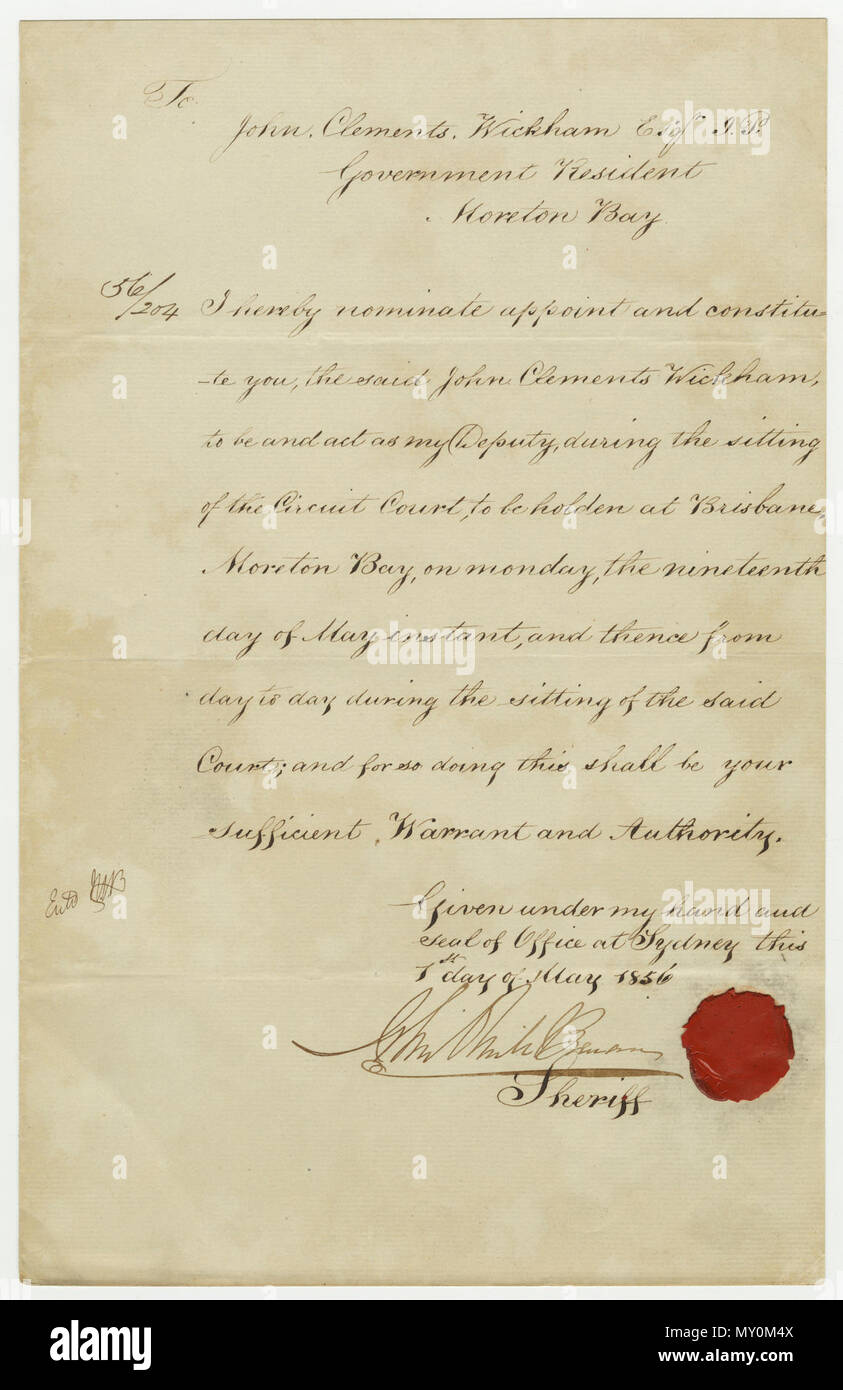 To
John Clements Wickham Esqr J.P.
Government Resident
Moreton Bay
56/204
I hereby nominate appoint and constitu=
-te you, the said John Clements Wickham,
to be and act as my Deputy, during the sitting
of the Circuit Court, to be holden at Brisbane,
Moreton Bay, on monday, the nineteenth
day of May instant, and thence from
day to day during the sitting of the said
Court; and for so doing this shall be your
sufficient Warrant and Authority.
Entd
Given under my hand and
seal of Office at Sydney this
1st day of May 1856
Sheriff
alamy
Image ID: MY0M4X
www.alamy.com